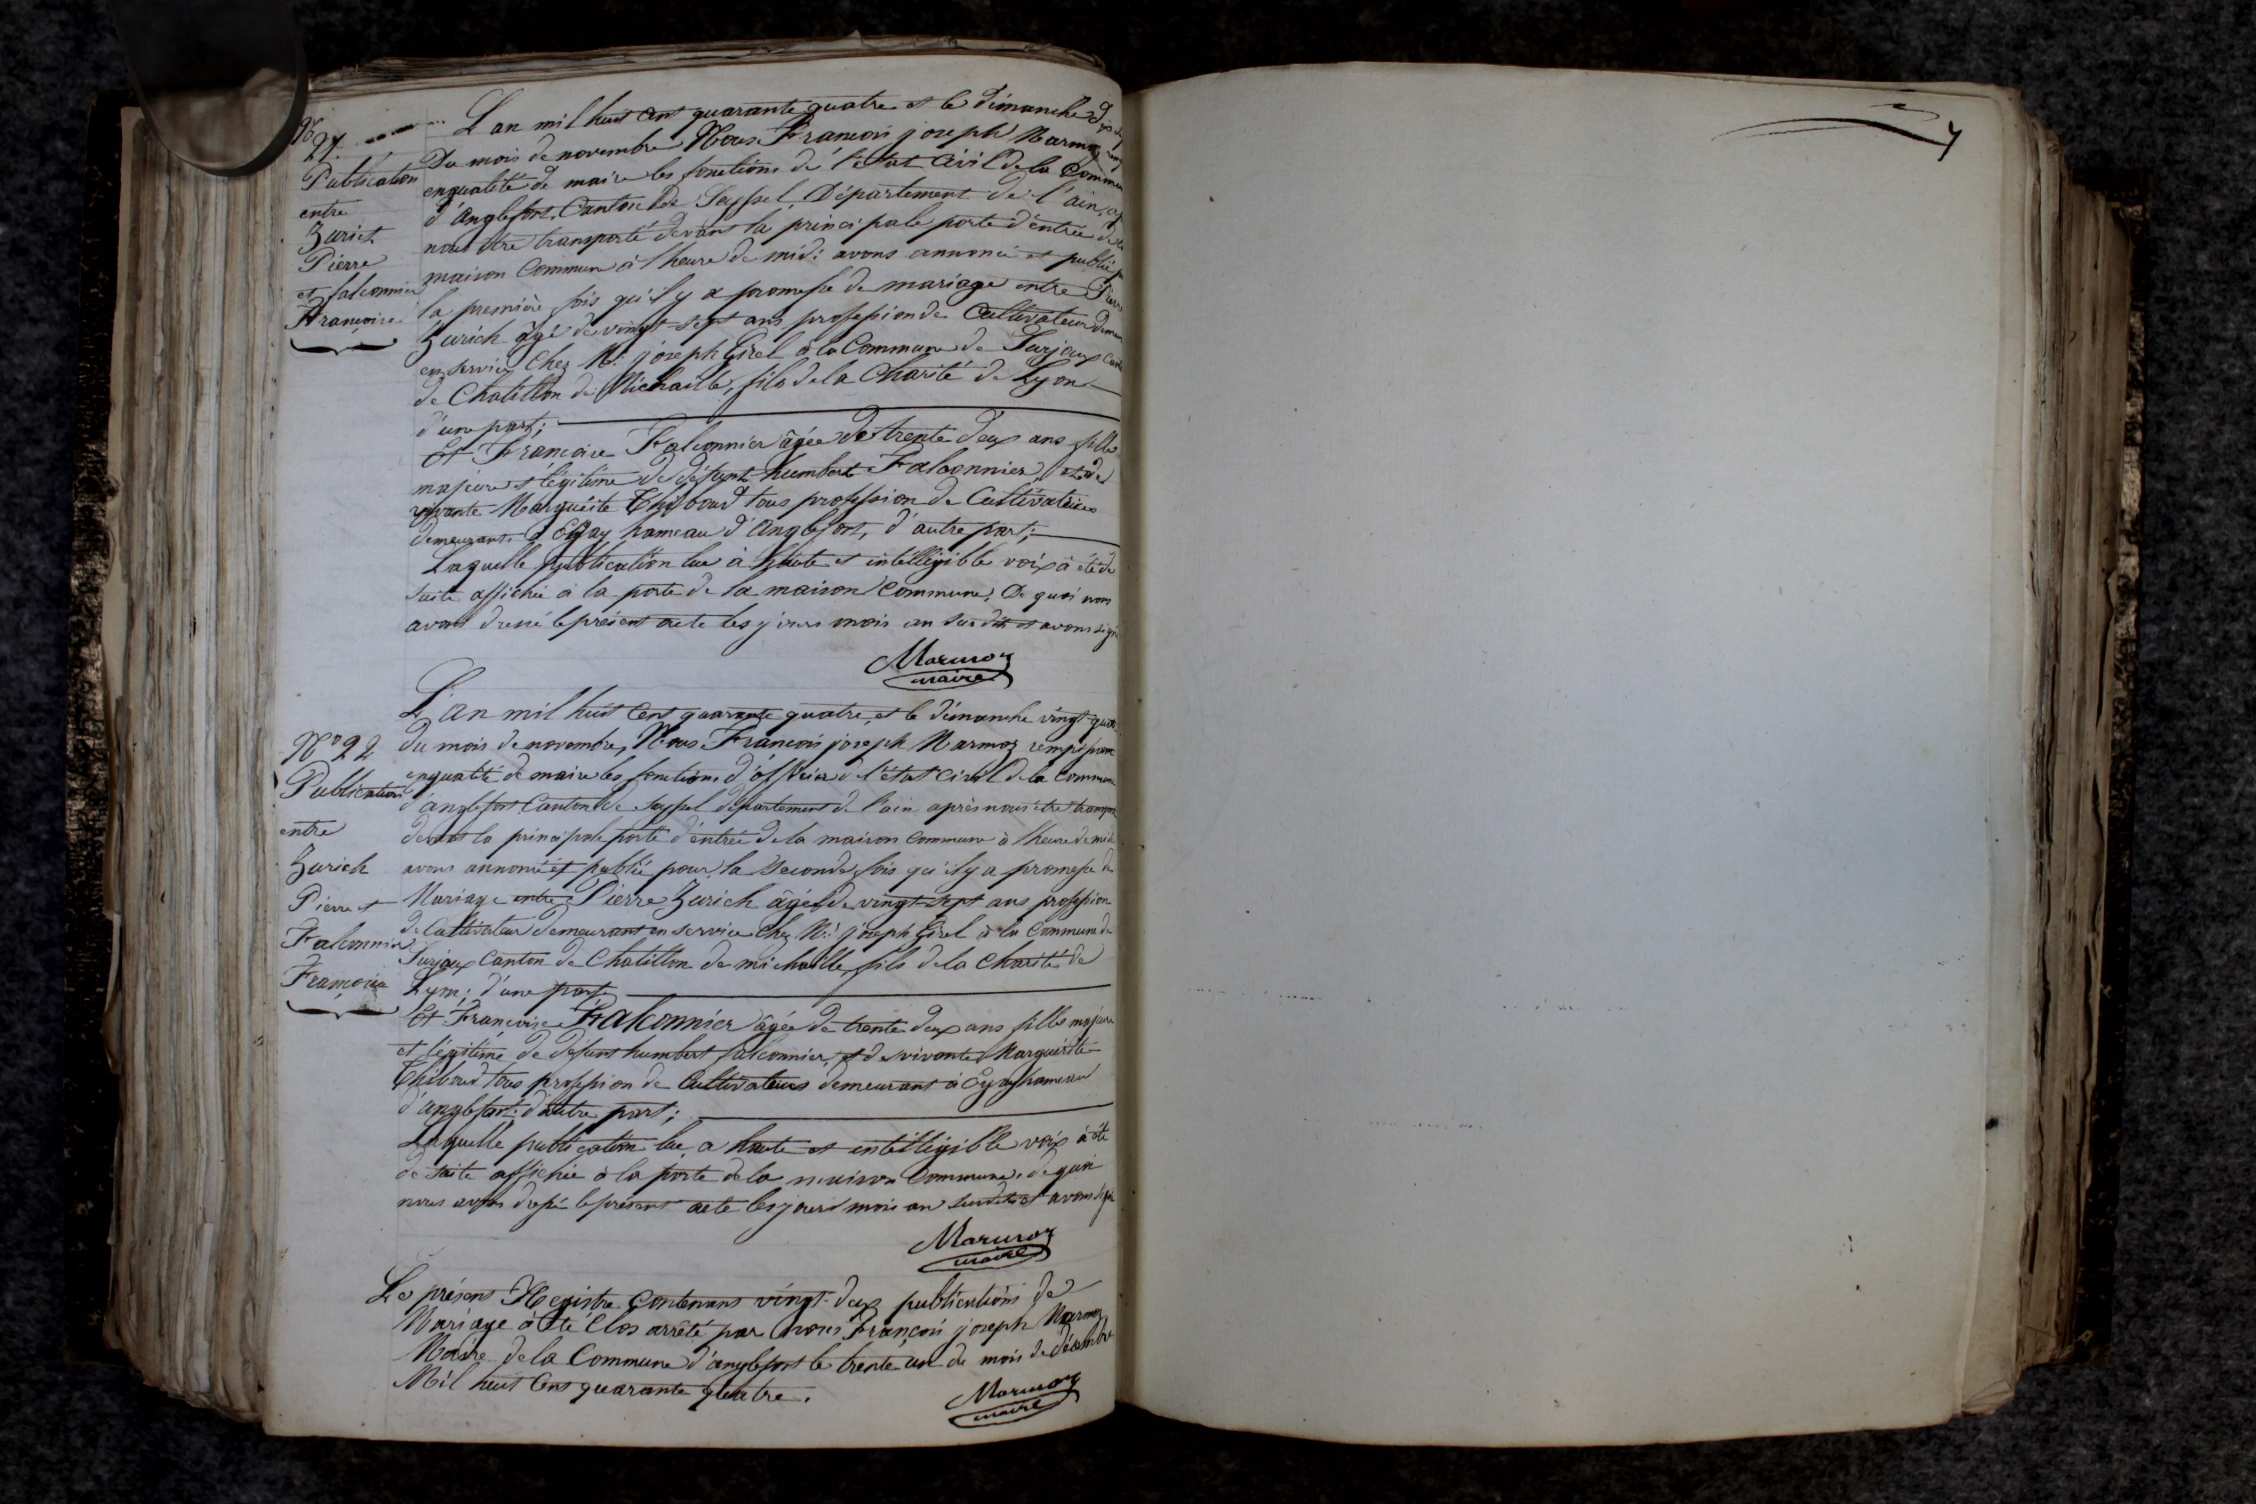 No
21.
Publication
entre
Zurich
Pierre
et falconnier
Françoise
L'an mil huit cent quarante quatre et le dimanche dix sept
Du mois de novembre Nous François joseph Marmoz
enqualité de maire les fonctions de l'état Civil de la Commune
d'anglefort, Canton de Seyssel, Département de l'ain,
nous être transporté devant la principale porte d'entrée de la
maison Commune à l'heure de midi avons annoncé et publié
la première fois qu'il y a promesse de mariage entre Pierre
Zurich âgé de vingt-sept ans profession de Cultivateur
en service Chez Mr. joseph Girel à la Commune de Surjoux
de Chatillon de Michaille, fils de la Charité de Lyon
d'une part;
Et Françoise Falconnier âgée de trente deux ans fille
majeure et légitime de défunt humbert Falconnier, et de
vivante Marguerite Thiboud tous profession de Cultivateurs
demeurant à Eyay hameau d'anglefort, d'autre part;
Laquelle publication lue à haute et intelligible voix à été de
suite affichée à la porte de la maison Commune. De quoi nous
avons dressé le présent acte les jours mois an susdits et avons signé
Marmoz
maire
No 22
Publication
entre
Zurich
Pierre et
Falconnier
Françoise
L'an mil huit Cent quarante quatre, et le dimanche vingt quatre
du mois de novembre, Nous François joseph Marmoz remplissant
enqualité de maire les fonctions d'officier de l'état civil de la Commune
d'anglefort Canton de Seyssel département de l'ain après nous être transporté
devant la principale porte d'entrée de la maison Commune à l'heure de midi
avons annoncé et publié pour la seconde fois qu'il y a promesse de
Mariage entre Pierre Zurich âgé de vingt-sept ans profession
de Cultivateur demeurant en service Chez Mr. joseph Girel à la Commune de
Surjoux Canton de Chatillon de michaille, fils de la Charité de
Lyon; d'une part
Et Françoise Falconnier âgée de trente deux ans fille majeure
et légitime de défunt humbert falconnier, et de vivante Marguerite
Thiboud tous profession de Cultivateurs demeurant à Eyay hameau
d'anglefort, d'autre part;
Laquelle publication lue a haute et intelligible voix à été
de suite affichée à la porte de la maison Commune, de quoi
nous avons dressé le présent acte les jours mois an susdits et avons signé
Marmoz
maire
Le présent Registre Contenant vingt-deux publications de
Mariage à été Clos arrêté par nous François joseph Marmoz
Maire de la Commune d'anglefort le trente un du mois de décembre
Mil huit Cent quarante quatre.
Marmoz
maire